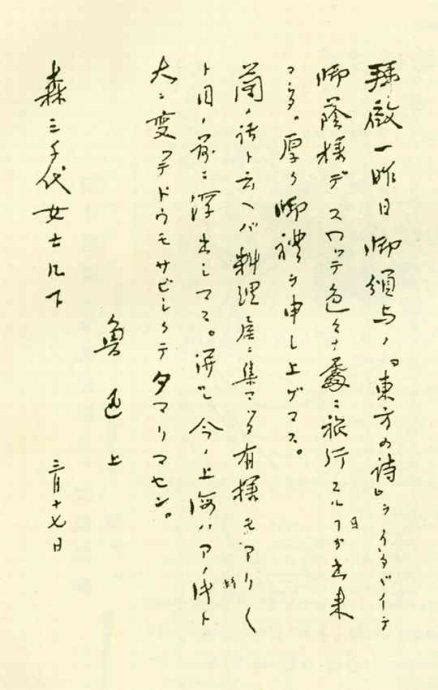 拝啓一昨日御頒与ノ『東方の詩』ヲイタダイテ
御蔭様デスワッテ色々ナ處ニ旅行スルヿガ出来
マシタ。厚ク御禮ヲ申シ上ゲマス。
蘭ノ話ト云ヘバ料理屋ニ集マル有様モアリ〱
ト目ノ前ニ浮出シマス。併シ今ノ上海ハアノ時ト
大ニ變ッテドウモサビシクテタマリマセン。
魯迅 上
森三千代女士几下 三月十七日